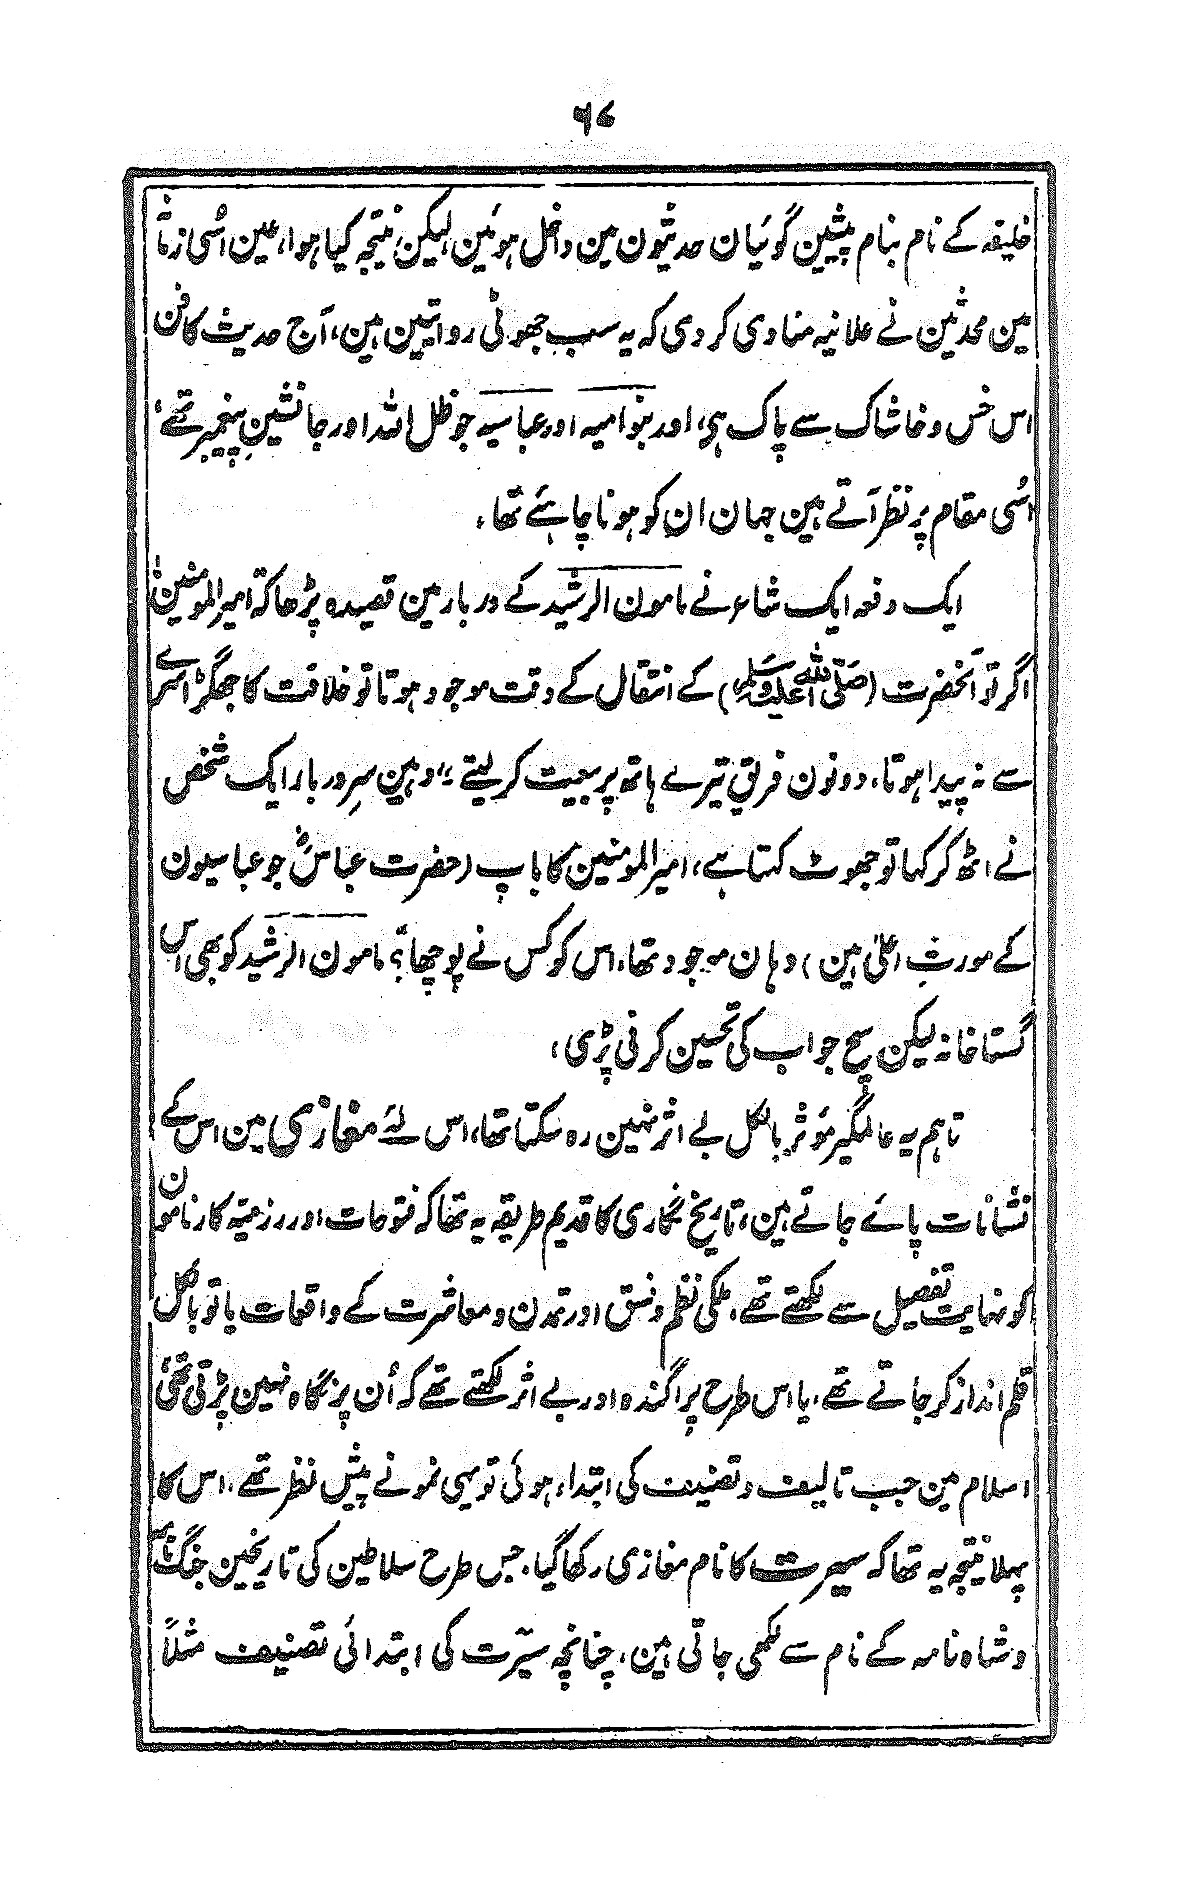 ۶۷
خلیفہ کے نام بنام پیشین گوئیان حدیثون مین داخل ہوئین، لیکن نتیجہ کیا ہوا، عین اسُی زمانہ
مین محدثین نے علانیہ منادی کردی کہ یہ سب جھوٹی روایتین ہین، آج حدیث کا فن
اس خس و خاشاک سے پاک ہی، اور بنوامیہ اور عباسیہ جو ظل اللہ اور جانشینِ پیغمبر تھے،
اسُی مقام پر نظر آتے ہین جہان ان کو ہونا چاہئے تھا،
ایک دفعہ ایک شاعر نے مامون الرشید کے دربار مین قصیدہ پڑھا کہ امیرالمومنین!
اگر تو آنحضرت (صَلَّی اللّٰہُ عَلَیْہِ وَسَلَّم) کے انتقال کے وقت موجود ہوتا تو خلافت کا جھگڑا سرے
سے نہ پیدا ہوتا، دونون فریق تیرے ہاتھ پر بیعت کر لیتے،" وہین سرِ دربار ایک شخص
نے اٹھ کر کہا تو جھوٹ کہتا ہے، امیرالمومنین کا باپ (حضرت عباسؓ جو عباسیون
کے مورث اعلیٰ ہین) وہان موجود تھا، اس کو کس نے پوچھا؟ مامون الرشید کو بھی اس
گستاخانہ لیکن سچ جواب کی تحسین کرنی پڑی،
تاہم یہ عالمگیر مؤثر بالکل بے اثر نہین رہ سکتا تھا، اس لئے مغازی مین اس کے
نشانات پائے جاتے ہین، تاریخ نگاری کا قدیم طریقہ یہ تھا کہ فتوحات اور رزمیہ کارنامون
کو نہایت تفصیل سے لکھتے تھے، ملکی نظم و نسق اور تمدن و معاشرت کے واقعات یا تو بالکل
قلم انداز کر جاتے تھے، یا اس طرح پراگندہ اور بے اثر لکھتے تھے کہ اُن پر نگاہ نہین پڑتی تھی،
اسلام مین جب تالیف و تصنیف کی ابتداء ہوئی تو یہی نمونے پیش نظر تھے، اس کا
پہلا نتیجہ یہ تھا کہ سیرت کا نام مغازی رکھا گیا، جس طرح سلاطین کی تاریخین جنگ نامہ
و شاہ نامہ کے نام سے لکھی جاتی ہین، چنانچہ سیرت کی ابتدائی تصنیف مثلاً